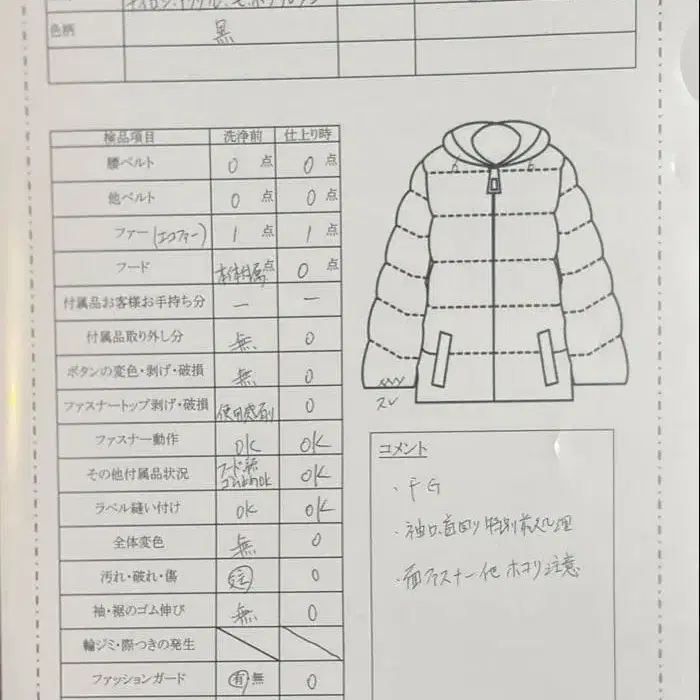 色柄 黒
検品項目 洗浄前 仕上り時
腰ベルト 0 点 0 点
他ベルト 0 点 0 点
ファー(エコファー) 1 点 1 点
フード 本体付属 点 0 点
付属品お客様お手持ち分 ー ー
付属品取り外し分 無 0
ボタンの変色・剥げ・破損 無 0
ファスナートップ剥げ・破損 使用感有り 0
ファスナー動作 OK OK
その他付属品状況 OK
ラベル縫い付け OK OK
全体変色 無 0
汚れ・破れ・傷 0
袖・裾のゴム伸び 無 0
輪ジミ・際つきの発生
ファッションガード 有・無 0
スレ
コメント
・FG
・袖口、首回り特別前処理
・面ファスナー他ホコリ注意